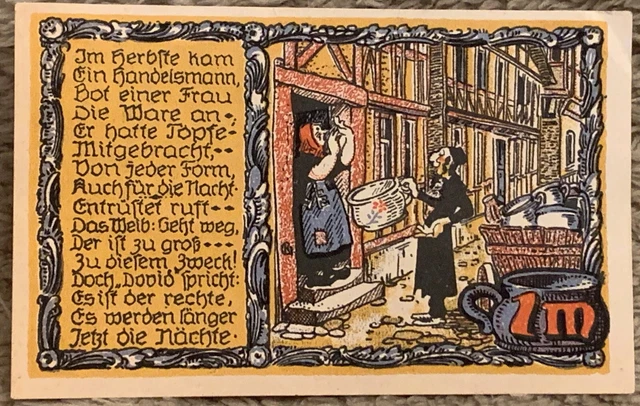 Im Herbste kam
Ein Handelsmann,
Bot einer Frau
Die Ware an-;
Er hatte Töpfe-
Mitgebracht,--
Von jeder Form,
Auch für die Nacht-
Entrüstet ruft--
Das Weib: Geht weg,
Der ist zu groß---
Zu diesem Zweck!
Doch „David“ spricht:
Es ist der rechte,
Es werden länger
Jetzt die Nächte.
1 m